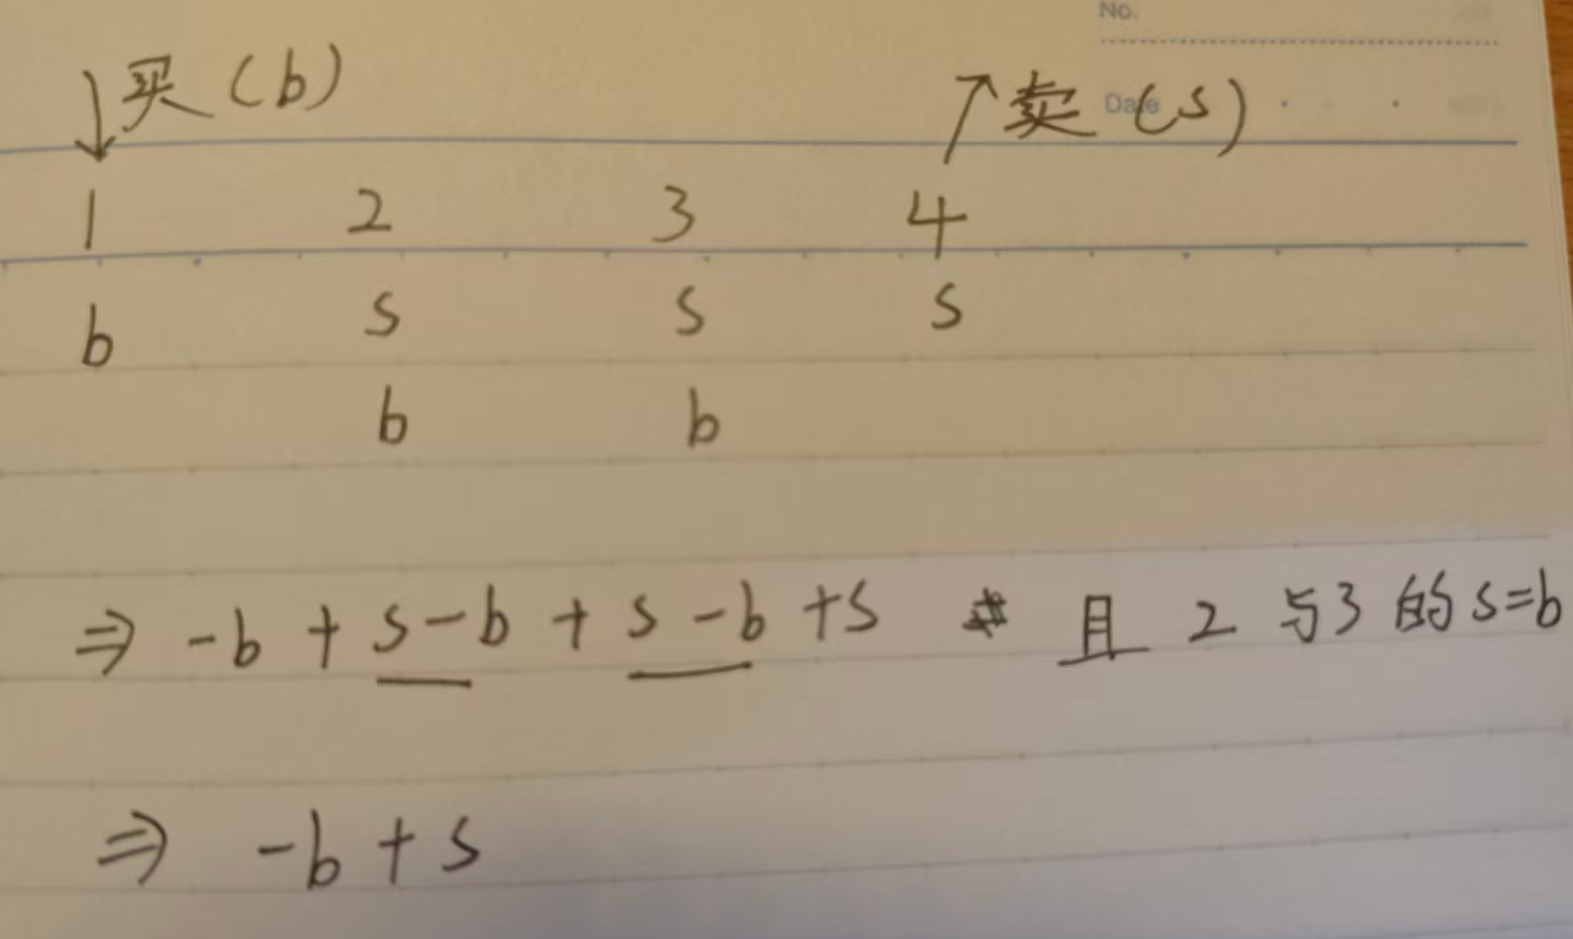 No.
Date
买 (b) 卖 (s)
1 2 3 4
b s s s
b b
⇒ -b + s-b + s-b +s 且 2 与3 的 s=b
⇒ -b + s